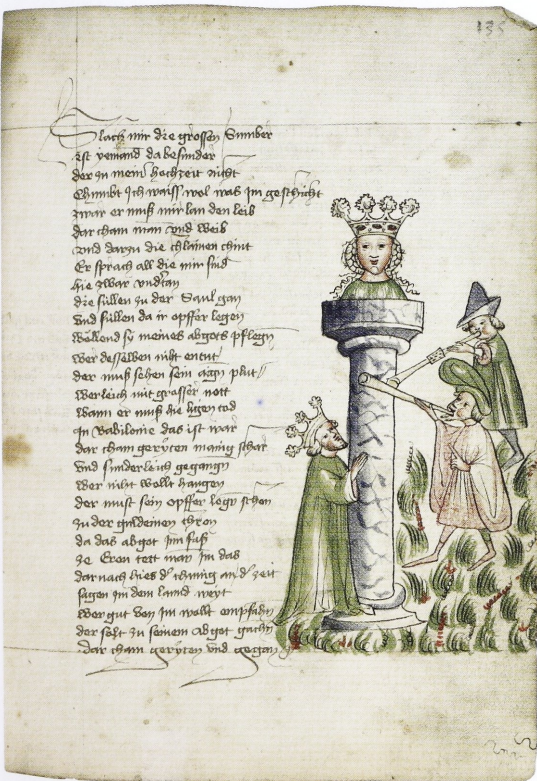 135
Slach mir die grossen Sumber
ist yemand da besunder
der zu meiner hochzeit nicht
Chumbt Ich waiss wol was Im geschicht
zwar er muss mir lan den leib
dar cham man vnd weib
vnd darzu die chlainen chint
Er sprach all die mir sind
hie zwar vndtan
die süllen zu der Saul gan
Vnd süllen da ir opffer legen
wellend sy meines abgots pflegn
wer desselben nibt entut
der muss sehen sein aign plut
werleich mit grasser nott
wann er muss hie ligen tod
In Babilonie das ist war
dar cham geryten manig schar
Vnd sunderleich gegangn
Wer niht wolt hangen
der must sein opffer legn schon
zu der guldeinen chron
da das abgot Inn sass
ze Eron tett man Im das
darnach hies d' chunig an d' zeit
sagen In dem lannd weyt
Wer gut von Im wollt empfahn
der solt zu seinem abgot gachn
dar cham geryten vnd gegan